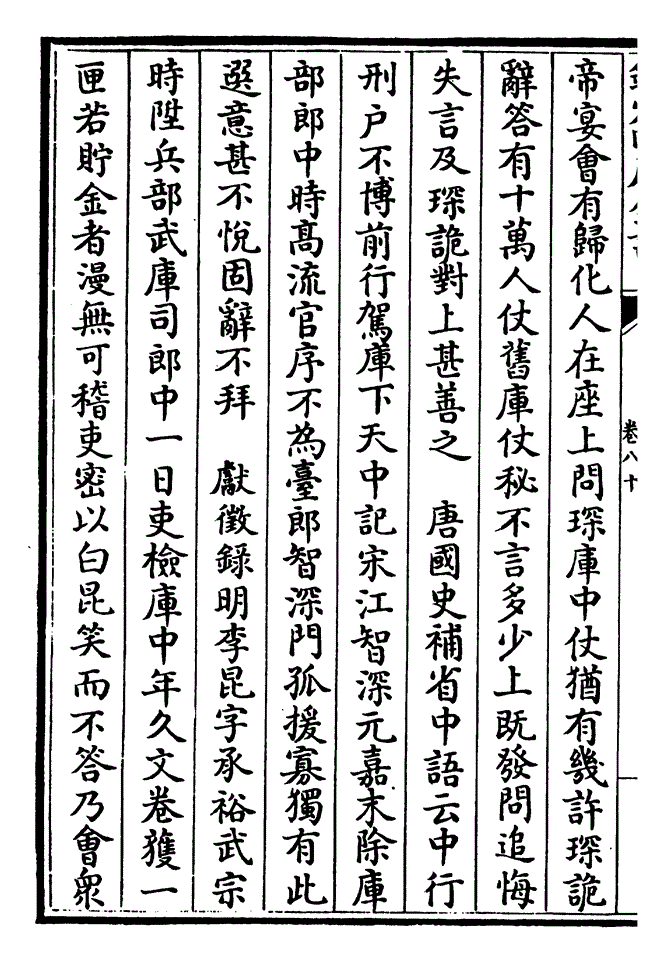 卷八十
帝宴會有歸化人在座上問琛庫中仗猶有幾許琛詭
辭答有十萬人仗舊庫仗秘不言多少上既發問追悔
失言及琛詭對上甚善之　唐國史補省中語云中行
刑户不博前行駕庫下天中記宋江智深元嘉末除庫
部郎中時髙流官序不為臺郎智深門孤援寡獨有此
選意甚不悅固辭不拜　獻徵錄明李昆字承裕武宗
時陞兵部武庫司郎中一日吏檢庫中年久文卷獲一
匣若貯金者漫無可稽吏密以白昆笑而不答乃會衆